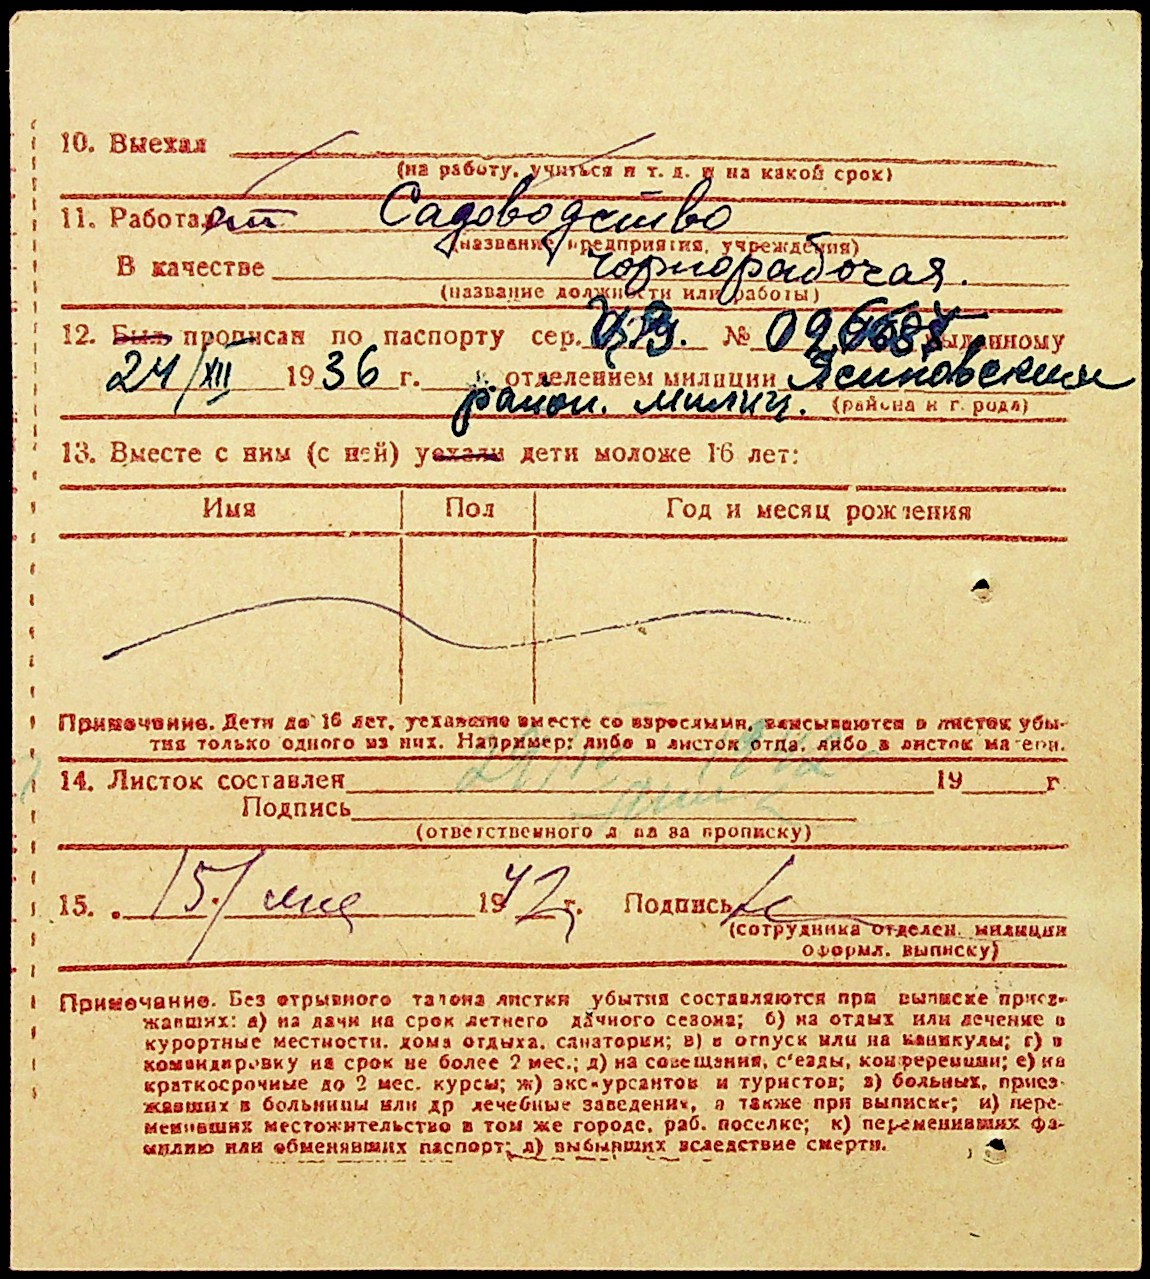 10. Выехал
(на работу, учиться и т. д. и на какой срок)
11. Работает Садоводство
(название предприятия, учреждения)
В качестве Чорнорабочая.
(название должности или работы)
12. Был прописан по паспорту сер. № выданному
24/XII 1936 г. отделением милиции Ясиновским
район. милиц. (района и города)
13. Вместе с ним (с ней) уехали дети моложе 16 лет:
Имя Пол Год и месяц рождения
Примечание. Дети до 16 лет, уехавшие вместе со взрослыми, вписываются в листок убы-
тия только одного из них. Например: либо в листок отца, либо в листок матери.
14. Листок составлен 19 г
Подпись
(ответственного лица за прописку)
15. 15/ 1942 г. Подпись
(сотрудника отделен. милиции
оформл. выписку)
Примечание. Без отрывного талона листки убытия составляются при выписке приез-
жавших: а) на дачи на срок летнего дачного сезона; б) на отдых или лечение в
курортные местности, дома отдыха, санатории; в) в отпуск или на каникулы; г) в
командировку на срок не более 2 мес.; д) на совещания, с'езды, конференции; е) на
краткосрочные до 2 мес. курсы; ж) экскурсантов и туристов; з) больных, приез-
жавших в больницы или др лечебные заведения, а также при выписке; и) пере-
менивших местожительство в том же городе, раб. поселке; к) переменивших фа-
милию или обменявших паспорт; л) выбывших вследствие смерти.